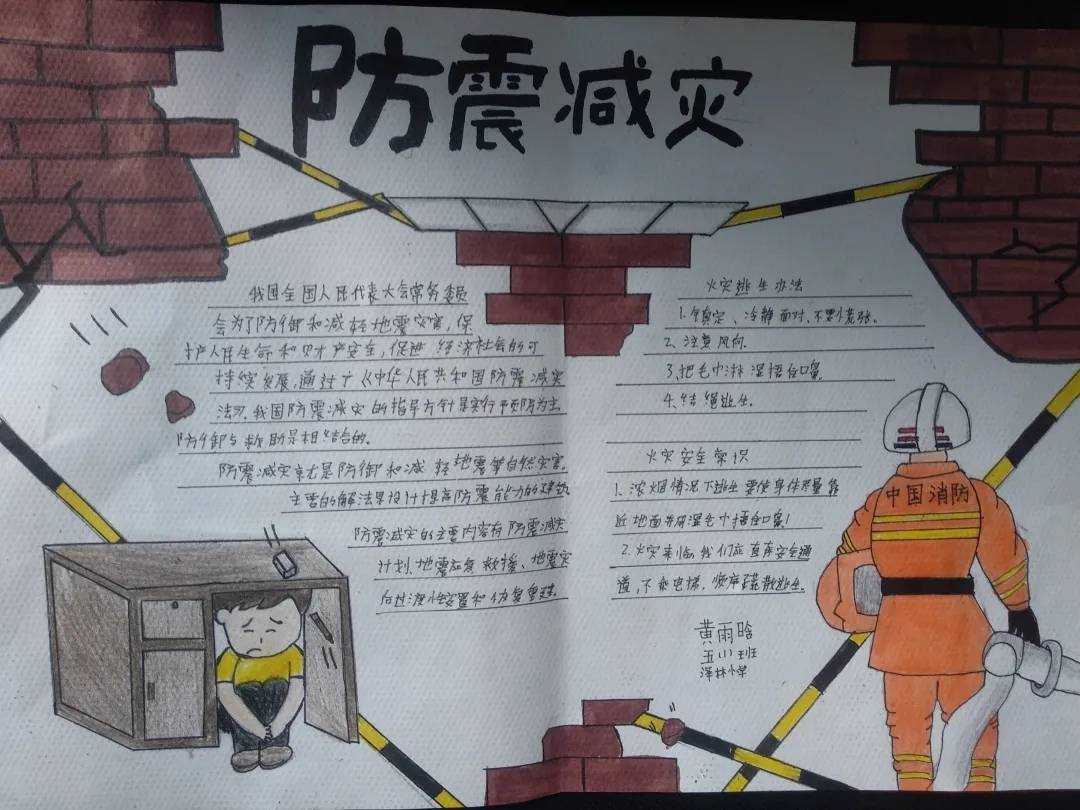 防震减灾
我国全国人民代表大会常务委员
会为了防御和减轻地震灾害，保
护人民生命和财产安全，促进经济社会的可
持续发展，通过了《中华人民共和国防震减灾
法》，我国防震减灾的指导方针是实行予防为主
防御与救助是相结合的。
防震减灾就是防御和减轻地震等自然灾害。
主要的解法是设计提高防震能力的建筑
防震减灾的主要内容有防震减灾
计划、地震应急救援、地震灾
后过渡性安置和恢复重建。
火灾逃生办法
1.镇定、冷静面对，不要慌张。
2.注意风向
3.把毛巾淋湿捂住口鼻
4.结绳逃生.
火灾安全常识
1.浓烟情况下逃生要使身体尽量靠
近地面并用湿毛巾捂住口鼻！
2.火灾来临，我们应直奔安全通
道，不乘电梯，顺序疏散逃生。
黄雨晗
五(1)班
泽林小学
中国消防